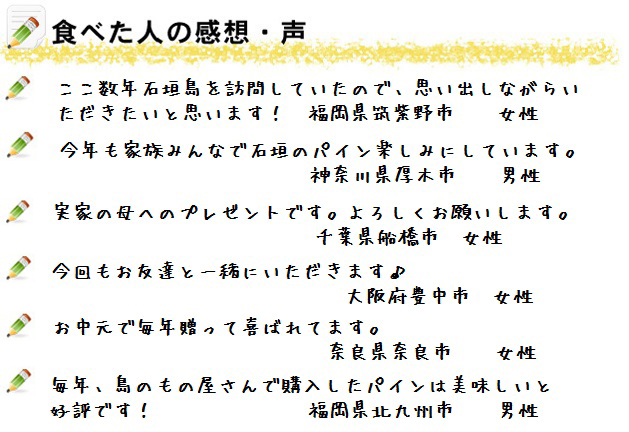 食べた人の感想・声
ここ数年石垣島を訪問していたので、思い出しながらい
ただきたいと思います！　福岡県筑紫野市　　女性
今年も家族みんなで石垣のパイン楽しみにしています。
神奈川県厚木市　　男性
実家の母へのプレゼントです。よろしくお願いします。
千葉県船橋市　女性
今回もお友達と一緒にいただきます♪
大阪府豊中市　女性
お中元で毎年贈って喜ばれてます。
奈良県奈良市　　女性
毎年、島のもの屋さんで購入したパインは美味しいと
好評です！　　　　　　　福岡県北九州市　　男性